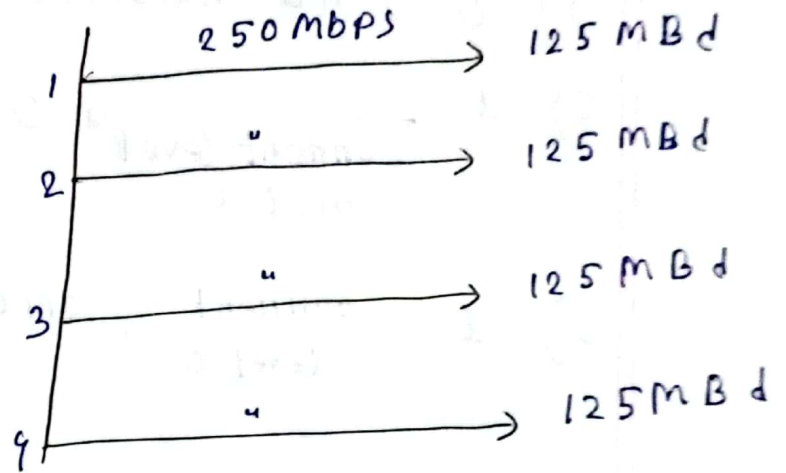 250 Mbps 125 MBd
1
" 125 MBd
2
" 125 MBd
3
" 125 MBd
4